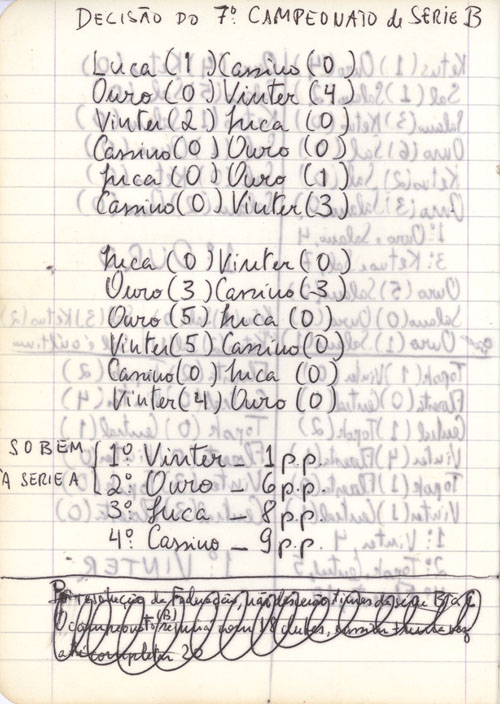 DECISÃO DO 7º CAMPEONATO de SERIE B
Luca (1) Cassino (0)
Ouro (0) Vinter (4)
Vinter (2) Luca (0)
Cassino (0) Ouro (0)
Luca (0) Ouro (1)
Cassino (0) Vinter (3)
Luca (0) Vinter (0)
Ouro (3) Cassino (3)
Ouro (5) Luca (0)
Vinter (5) Cassino (0)
Cassino (0) Luca (0)
Vinter (4) Ouro (0)
SOBEM À SERIE A
1º Vinter - 1 p.p.
2º Ouro - 6 p.p.
3º Luca - 8 p.p.
4º Cassino - 9 p.p.
resolução da Federação, não descerão times da série B
O campeonato (B) com 18 clubes,
até completar 20